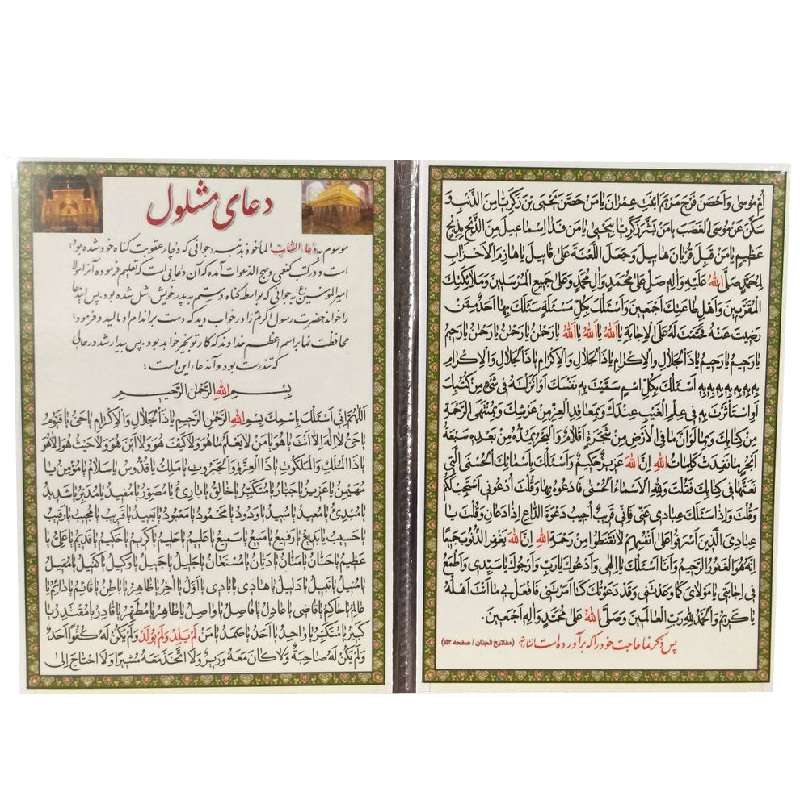 دعای مشلول
موسوم به دعاء الشّاب المأخوذ بذنبه جوانی که دچار عقوبت گناه خود شده بود
است و در کتب کفعمی و مهج الدعوات آمده که آن دعائی است که تعلیم فرموده آنرا
امیرالمؤمنین به جوانی که بواسطه گناه و ستم به پدر خویش شل شده بود پس ایندعا
را خواند حضرت رسول اکرم را در خواب دید که دست بر اندام او مالید و فرمود
محافظت نما بر اسم اعظم خدا بدرستی که کار تو بخیر خواهد بود، پس بیدار شد در حالی
که تندرست بود و آن دعا، این است:
بِسْمِ اللهِ الرَّحْمٰنِ الرَّحیمِ
اَللّٰهُمَّ اِنّی اَسْئَلُكَ بِاسْمِكَ بِسْمِ اللهِ الرَّحْمٰنِ الرَّحیمِ یا ذَا الْجَلالِ وَالْاِکْرامِ یا حَیُّ یا قَیُّومُ
یا حَیُّ لا اِلٰهَ اِلّا اَنْتَ یا هُوَ یا مَنْ لا یَعْلَمُ ما هُوَ وَلا کَیْفَ هُوَ وَلا اَیْنَ هُوَ وَلا حَیْثُ هُوَ اِلّا هُوَ
یا ذَا الْمُلْكِ وَالْمَلَکُوتِ یا ذَا الْعِزَّةِ وَالْجَبَرُوتِ یا مَلِكُ یا قُدُّوسُ یا سَلامُ یا مُؤْمِنُ یا
مُهَیْمِنُ یا عَزیزُ یا جَبّارُ یا مُتَکَبِّرُ یا خالِقُ یا بارِئُ یا مُصَوِّرُ یا مُفیدُ یا مُدَبِّرُ یا شَدیدُ
یا مُبْدِئُ یا مُعیدُ یا مُبیدُ یا وَدُودُ یا مَحْمُودُ یا مَعْبُودُ یا بَعیدُ یا قَریبُ یا مُجیبُ یا رَقیبُ
یا حَسیبُ یا بَدیعُ یا رَفیعُ یا مَنیعُ یا سَمیعُ یا عَلیمُ یا حَلیمُ یا کَریمُ یا حَکیمُ یا قَدیمُ یا عَلِیُّ یا
عَظیمُ یا حَنّانُ یا مَنّانُ یا دَیّانُ یا مُسْتَعانُ یا جَلیلُ یا جَمیلُ یا وَکیلُ یا کَفیلُ یا مُقیلُ
یا مُنیلُ یا نَبیلُ یا دَلیلُ یا هادی یا بادی یا اَوَّلُ یا آخِرُ یا ظاهِرُ یا باطِنُ یا قائِمُ یا دائِمُ یا
عالِمُ یا حاکِمُ یا قاضی یا عادِلُ یا فاصِلُ یا واصِلُ یا طاهِرُ یا مُطَهِّرُ یا قادِرُ یا مُقْتَدِرُ یا
کَبیرُ یا مُتَکَبِّرُ یا واحِدُ یا اَحَدُ یا صَمَدُ یا مَنْ لَمْ یَلِدْ وَلَمْ یُولَدْ وَلَمْ یَکُنْ لَهُ کُفُواً اَحَدٌ
وَلَمْ یَکُنْ لَهُ صاحِبَةٌ وَلا کانَ مَعَهُ وَزیرٌ وَلَا اتَّخَذَ مَعَهُ مُشیراً وَلَا احْتاجَ اِلٰی
اُمِّ مُوسٰی وَاَحْصَنَ فَرْجَ مَرْیَمَ ابْنَتِ عِمْرانَ یا مَنْ حَصَّنَ یَحْیَی بْنَ زَکَرِیّا مِنَ الذَّنْبِ وَ
سَکَّنَ عَنْ مُوسَی الْغَضَبَ یا مَنْ بَشَّرَ زَکَرِیّا بِیَحْیٰی یا مَنْ فَدا اِسْماعیلَ مِنَ الذَّبْحِ بِذِبْحٍ
عَظیمٍ یا مَنْ قَبِلَ قُرْبانَ هابیلَ وَجَعَلَ اللَّعْنَةَ عَلٰی قابیلَ یا هازِمَ الْاَحْزابِ
لِمُحَمَّدٍ صَلَّی اللهُ عَلَیْهِ وَآلِهِ صَلِّ عَلٰی مُحَمَّدٍ وَآلِ مُحَمَّدٍ وَعَلٰی جَمیعِ الْمُرْسَلینَ وَمَلائِکَتِكَ
الْمُقَرَّبینَ وَاَهْلِ طاعَتِكَ اَجْمَعینَ وَاَسْئَلُكَ بِکُلِّ مَسْئَلَةٍ سَئَلَكَ بِها اَحَدٌ مِمَّنْ
رَضیتَ عَنْهُ فَحَتَمْتَ لَهُ عَلَی الْاِجابَةِ یا اَللهُ یا اَللهُ یا اَللهُ یا رَحْمٰنُ یا رَحْمٰنُ یا رَحیمُ
یا رَحیمُ یا رَحیمُ یا ذَا الْجَلالِ وَالْاِکْرامِ یا ذَا الْجَلالِ وَالْاِکْرامِ یا ذَا الْجَلالِ وَالْاِکْرامِ
بِهِ بِهِ بِهِ بِهِ بِهِ بِهِ بِهِ اَسْئَلُكَ بِکُلِّ اسْمٍ سَمَّیْتَ بِهِ نَفْسَكَ اَوْ اَنْزَلْتَهُ فی شَیْءٍ مِنْ کُتُبِكَ
اَوِ اسْتَأْثَرْتَ بِهِ فی عِلْمِ الْغَیْبِ عِنْدَكَ وَبِمَعاقِدِ الْعِزِّ مِنْ عَرْشِكَ وَبِمُنْتَهَی الرَّحْمَةِ
مِنْ کِتابِكَ وَبِما لَوْ اَنَّ ما فِی الْاَرْضِ مِنْ شَجَرَةٍ اَقْلامٌ وَالْبَحْرُ یَمُدُّهُ مِنْ بَعْدِهِ سَبْعَةُ
اَبْحُرٍ ما نَفِدَتْ کَلِماتُ اللهِ اِنَّ اللهَ عَزیزٌ حَکیمٌ وَاَسْئَلُكَ بِاَسْمائِكَ الْحُسْنَی الَّتی
نَعَتَّها فی کِتابِكَ فَقُلْتَ وَلِلّٰهِ الْاَسْماءُ الْحُسْنٰی فَادْعُوهُ بِها وَقُلْتَ اُدْعُونی اَسْتَجِبْ لَکُمْ
وَقُلْتَ وَاِذا سَئَلَكَ عِبادی عَنّی فَاِنّی قَریبٌ اُجیبُ دَعْوَةَ الدّاعِ اِذا دَعانِ وَقُلْتَ یا
عِبادِیَ الَّذینَ اَسْرَفُوا عَلٰی اَنْفُسِهِمْ لا تَقْنَطُوا مِنْ رَحْمَةِ اللهِ اِنَّ اللهَ یَغْفِرُ الذُّنُوبَ جَمیعاً
اِنَّهُ هُوَ الْغَفُورُ الرَّحیمُ وَاَنَا اَسْئَلُكَ یا اِلٰهی وَاَدْعُوكَ یا رَبِّ وَاَرْجُوكَ یا سَیِّدی وَاَطْمَعُ
فی اِجابَتی یا مَوْلایَ کَما وَعَدْتَنی وَقَدْ دَعَوْتُكَ کَما اَمَرْتَنی فَافْعَلْ بی ما اَنْتَ اَهْلُهُ
یا کَریمُ وَالْحَمْدُ لِلّٰهِ رَبِّ الْعالَمینَ وَصَلَّی اللهُ عَلٰی مُحَمَّدٍ وَآلِهِ اَجْمَعینَ.
پس ذکر نما حاجت خود را که برآورده است انشاءالله (مفاتیح الجنان / صفحه ۱۵۳)